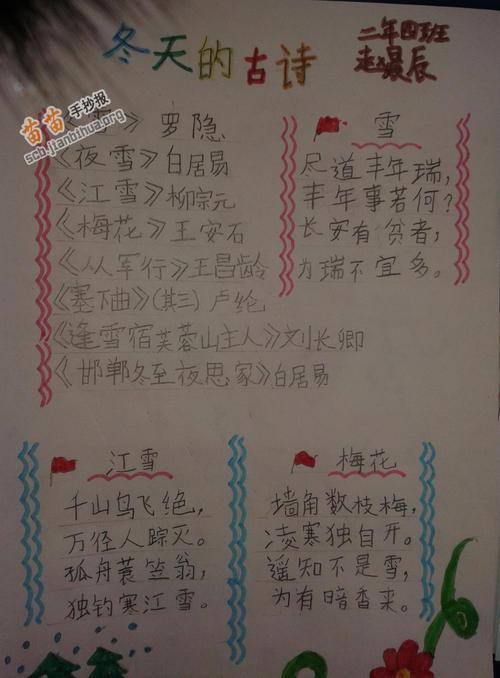 冬天的古诗
二年四班
赵晨辰
苗苗手抄报
scb.jianbihua.org
《雪》罗隐
《夜雪》白居易
《江雪》柳宗元
《梅花》王安石
《从军行》王昌龄
《塞下曲》(其三)卢纶
《逢雪宿芙蓉山主人》刘长卿
《邯郸冬至夜思家》白居易
雪
尽道丰年瑞,
丰年事若何?
长安有贫者,
为瑞不宜多。
江雪
千山鸟飞绝,
万径人踪灭。
孤舟蓑笠翁,
独钓寒江雪。
梅花
墙角数枝梅,
凌寒独自开。
遥知不是雪,
为有暗香来。